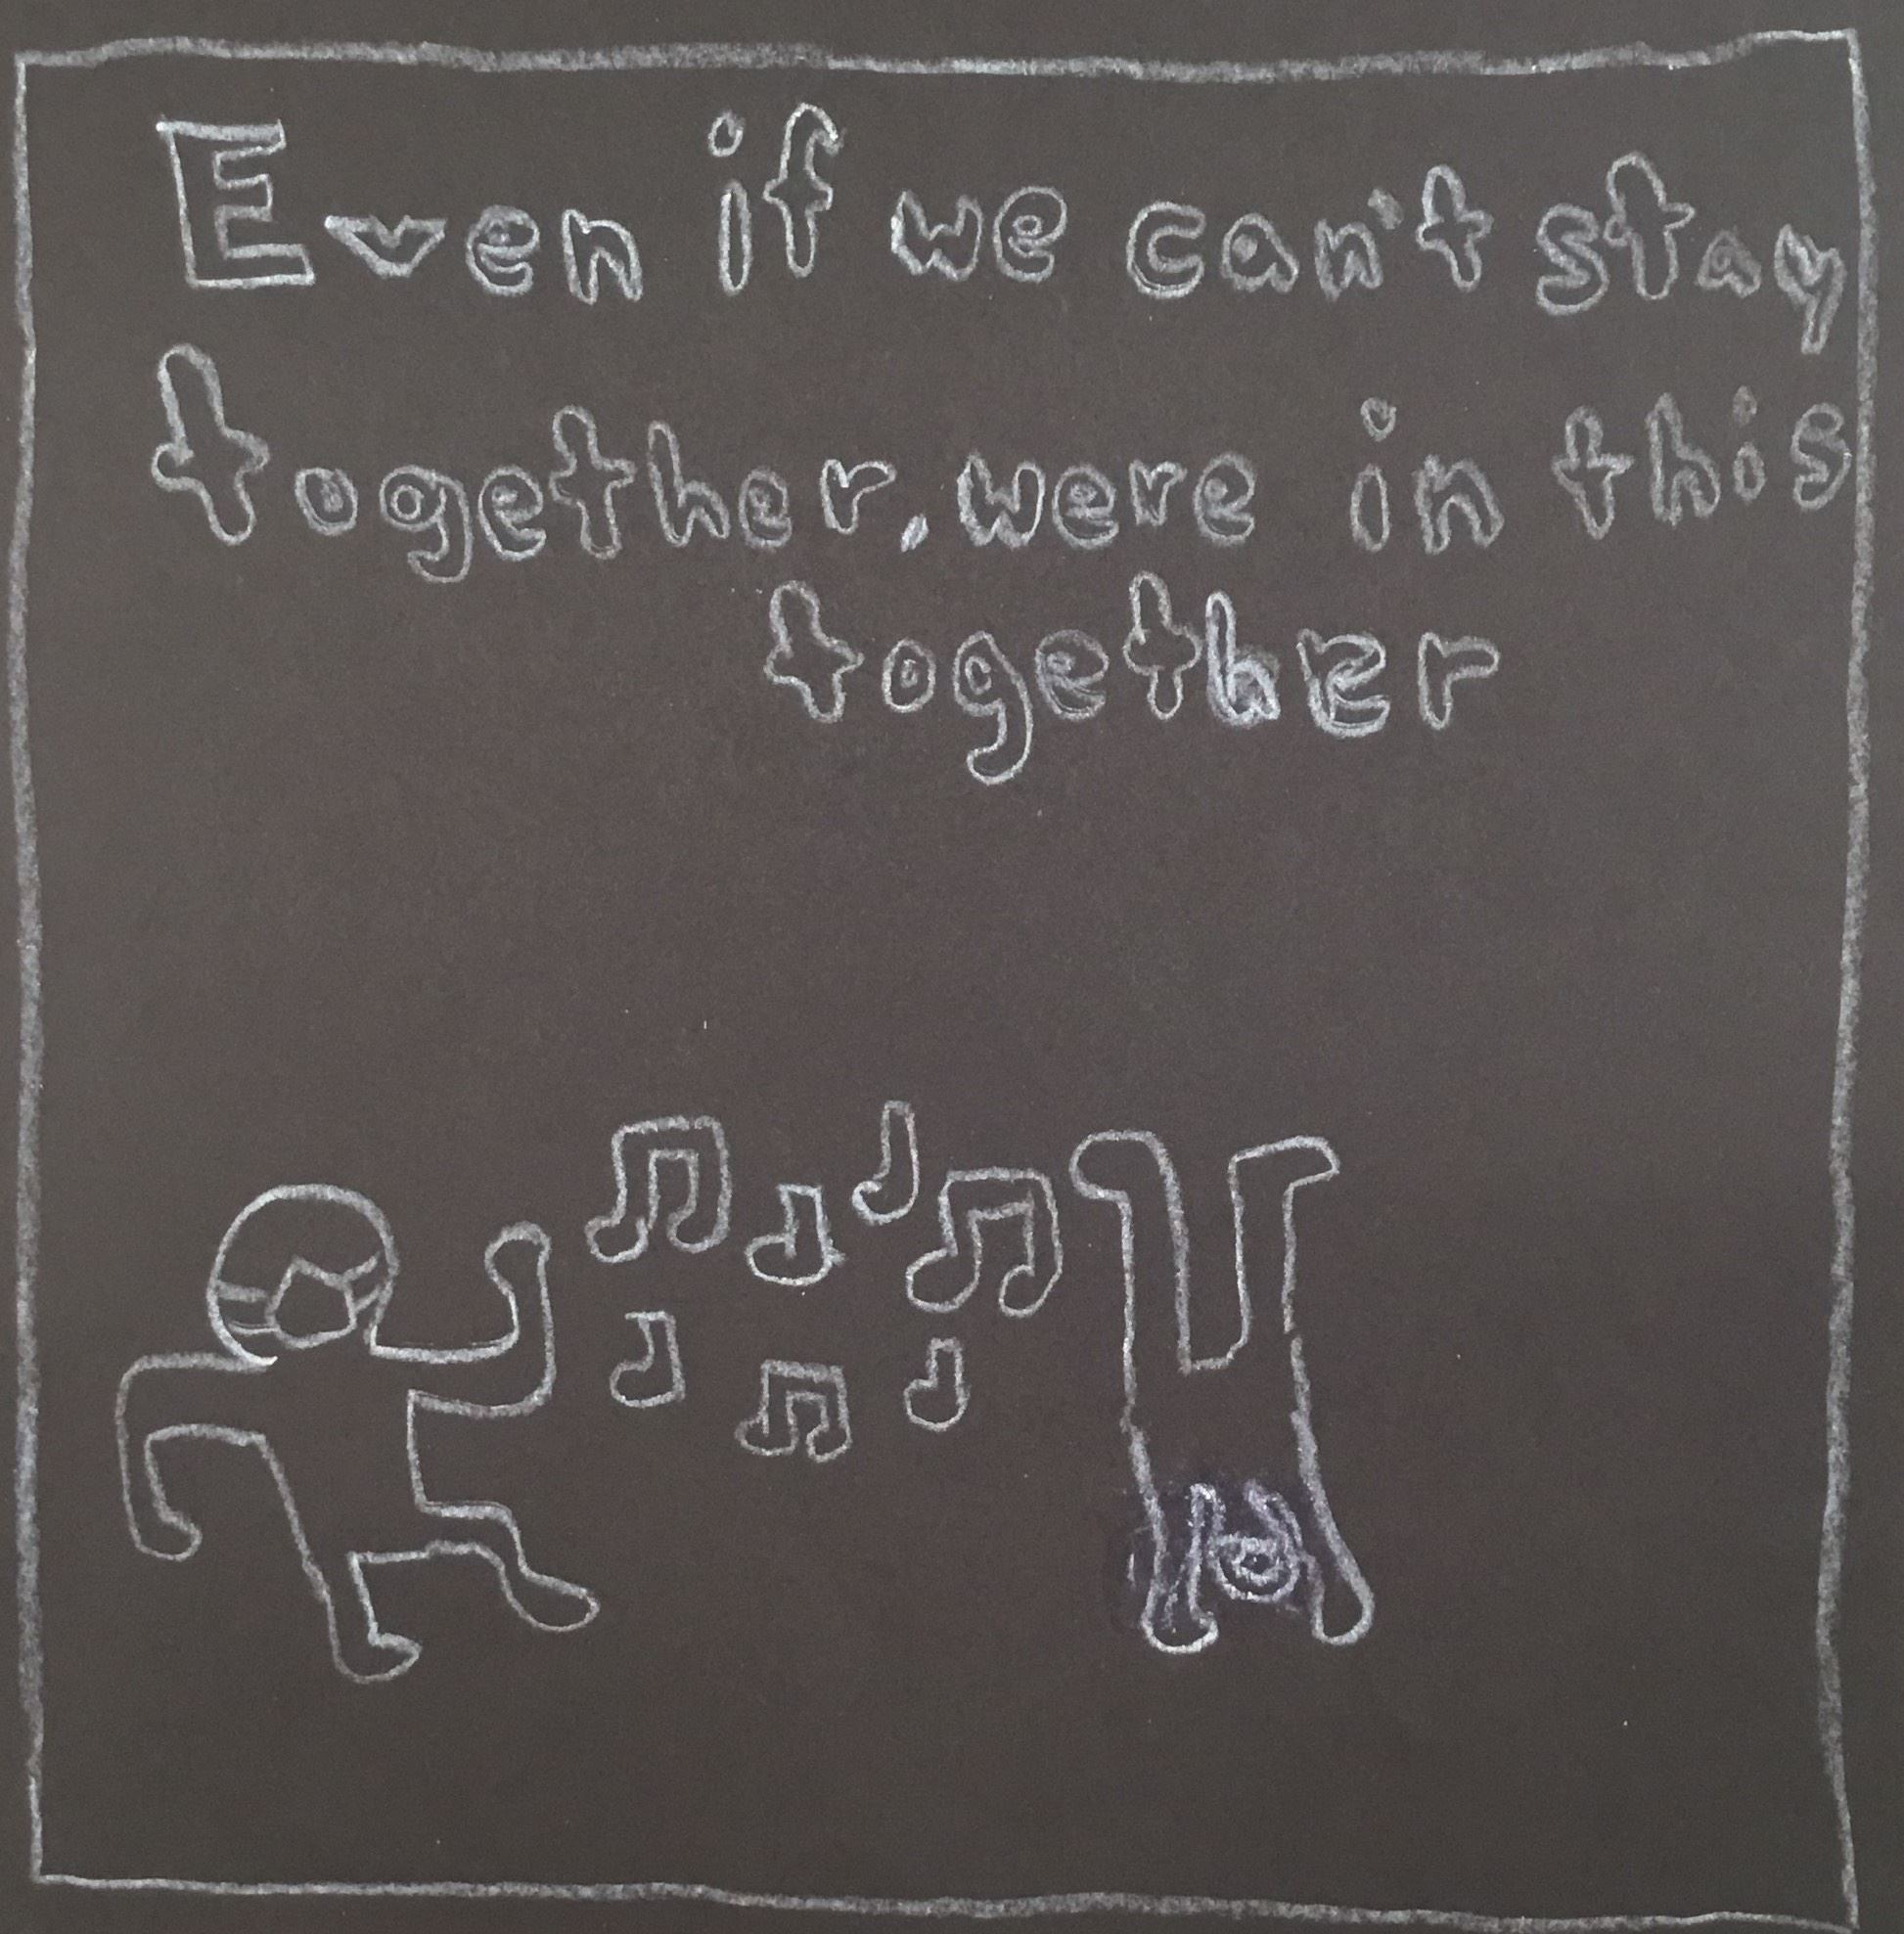 Even if we can't stay
together, were in this
together